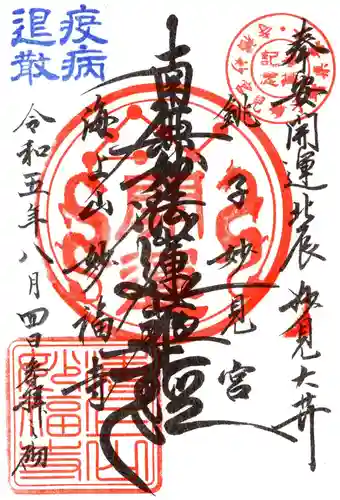 奉安開運北辰妙見大菩薩
銚子妙見宮
南無妙法蓮華経
海上山妙福寺
令和五年八月四日参拝之砌
疫病
退散